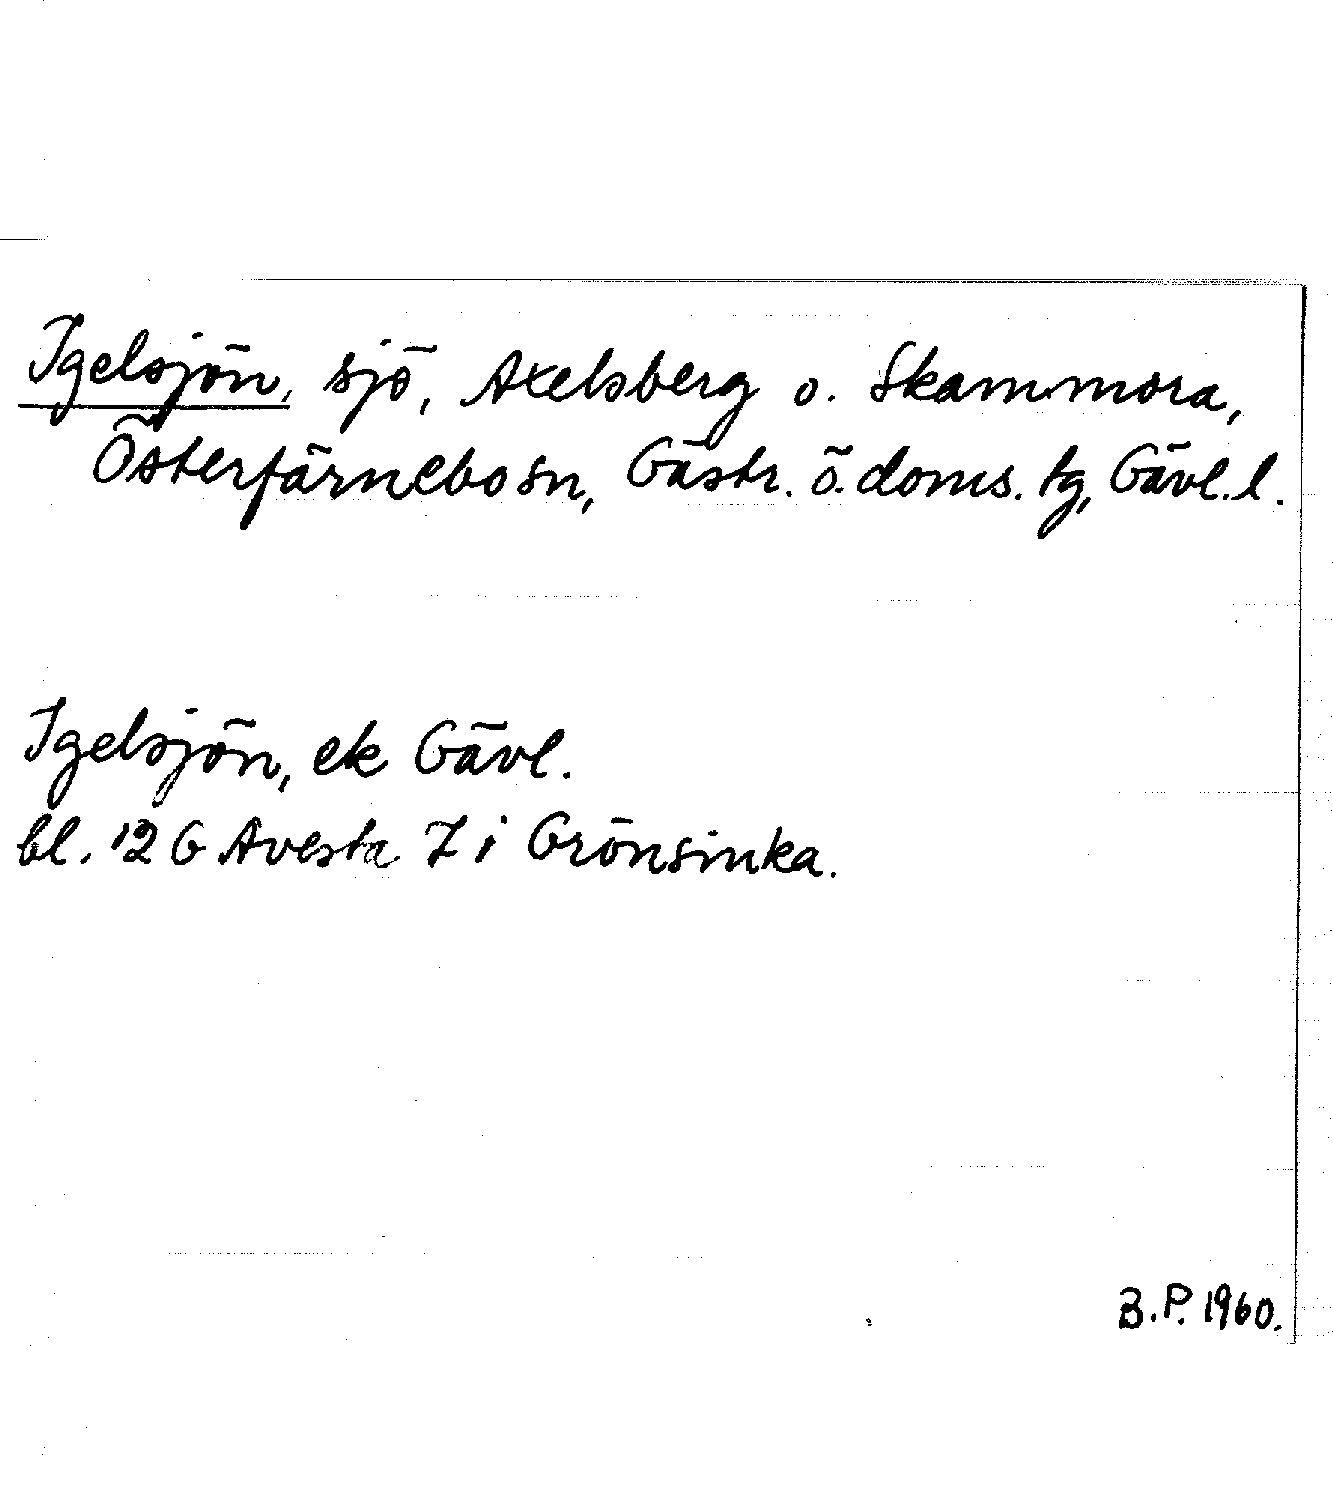 Igelsjön, sjö, Axelsberg o. Skammora,
Österfärnebo sn, Gästr. ö. doms. tg, Gävl. l.
Igelsjön, ek Gävl.
bl. 12 G Avesta 7 i Grönsinka.
B.P. 1960.